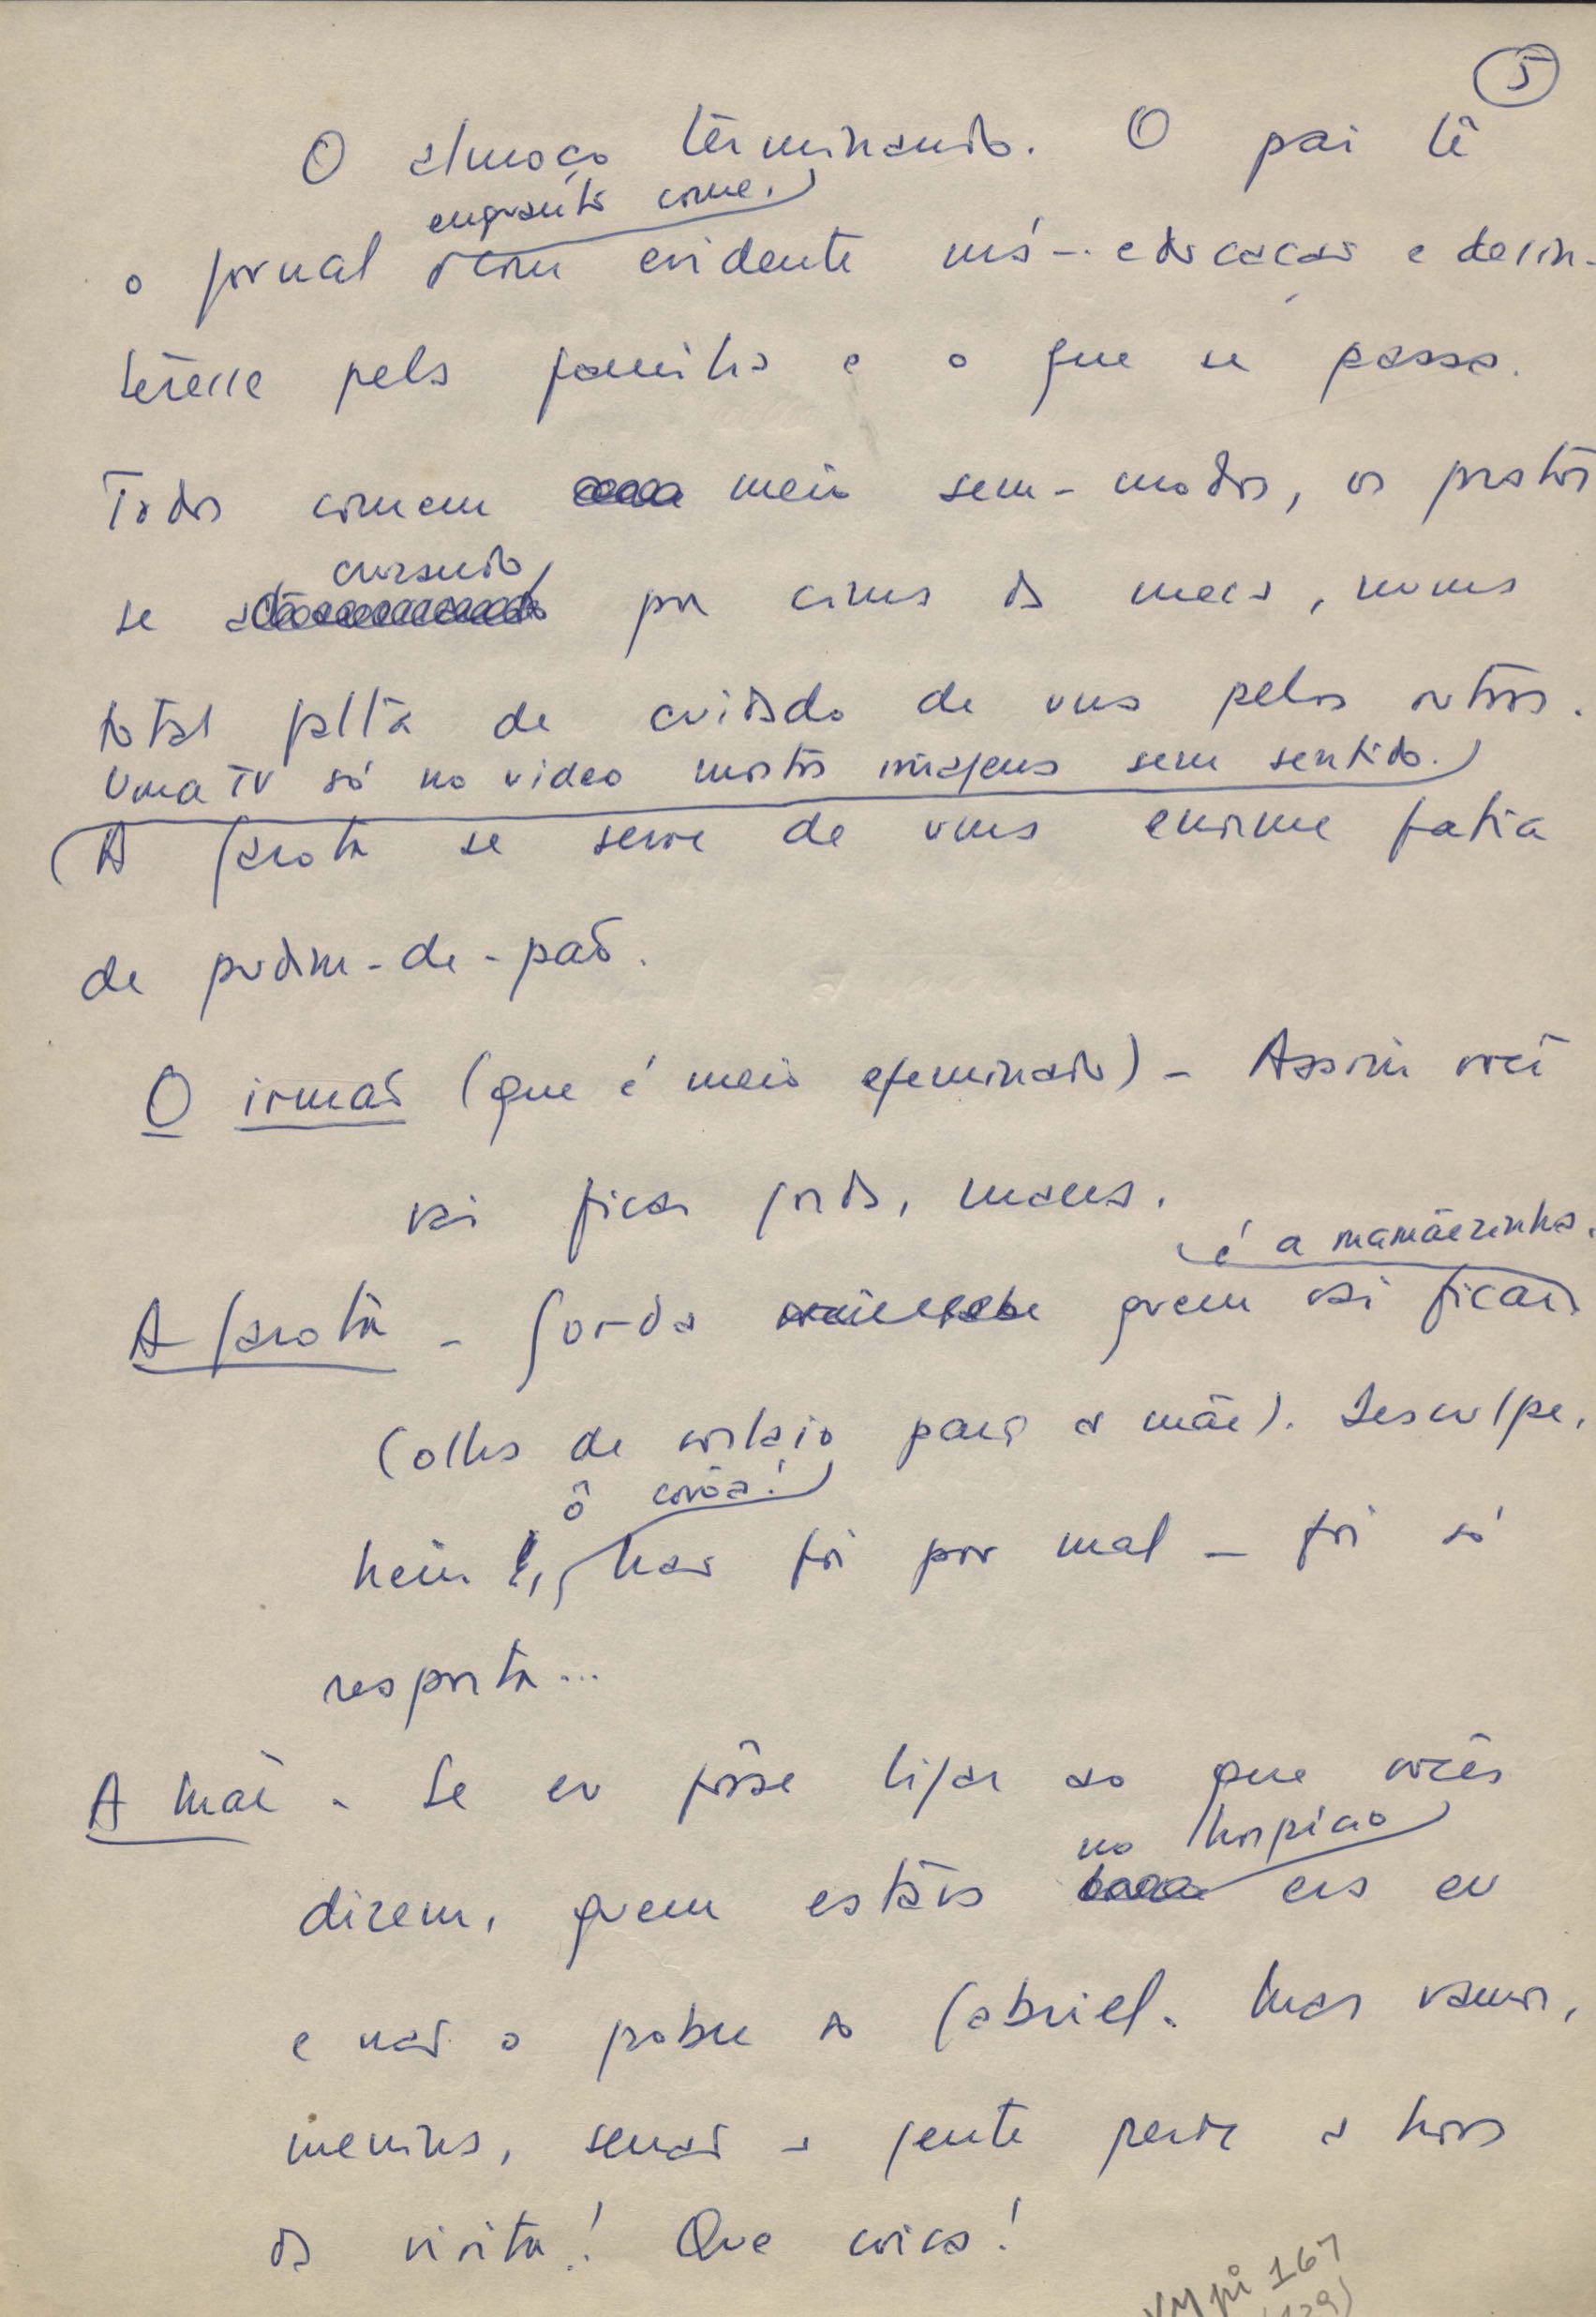 5
O almoço terminando. O pai lê
enquanto come.
o jornal com evidente má-educação e desin-
terêsse pela família e o que se passa.
Todos comem meio sem-modos, os pratos
cruzando
se por cima da mesa, numa
total falta de cuidado de uns pelos outros.
Uma TV só no video mostra imagens sem sentido.
A garota se serve de uma enorme fatia
de pudim-de-pão.
O irmão (que é meio efeminado) - Assim você
vai ficar gorda, mana.
é a mamãezinha.
A garota - Gorda quem vai ficar
(olha de soslaio para a mãe). Desculpe,
ô corôa!
hein, não foi por mal - foi só
resposta...
A mãe - Se eu fôsse ligar ao que vocês
no hospício
dizem, quem estava era eu
e não o pobre do Gabriel. Mas vamos,
menina, senão a gente perde a hora
da visita! Que coisa!
167